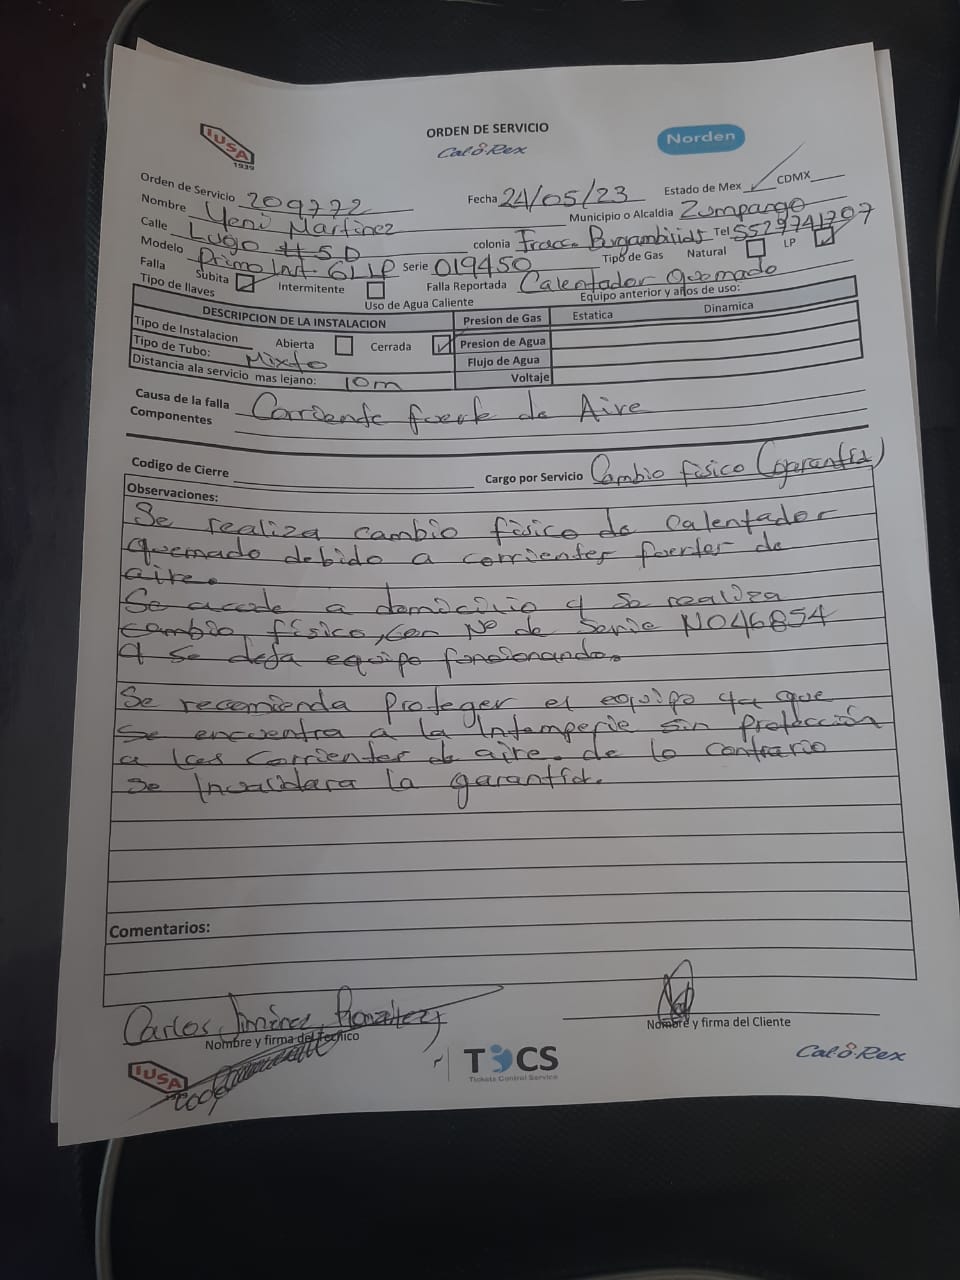 IUSA
1939
ORDEN DE SERVICIO
Cal-o-Rex
Norden
Orden de Servicio 209772 Fecha 24/05/23 Estado de Mex ✓ CDMX
Nombre Yeni Martinez Municipio o Alcaldia Zumpango
Calle Lugo #5D colonia Fracc. Bugambilias Tel 5529741707
Modelo Primo Inst 6L LP Serie 019450 Tipo de Gas Natural LP ✓
Falla Subita ✓ Intermitente Falla Reportada Calentador Quemado
Tipo de llaves Uso de Agua Caliente Equipo anterior y años de uso:
DESCRIPCION DE LA INSTALACION Presion de Gas Estatica Dinamica
Tipo de Instalacion Abierta Cerrada ✓ Presion de Agua
Tipo de Tubo: Mixto Flujo de Agua
Distancia ala servicio mas lejano: 10m Voltaje
Causa de la falla Corriente fuerte de Aire
Componentes
Codigo de Cierre Cargo por Servicio Cambio físico (garantía)
Observaciones:
Se realiza cambio físico de Calentador
quemado debido a corrientes fuertes de
aire.
Se acude a domicilio y se realiza
cambio físico, con Nº de Serie N046854
y se deja equipo funcionando.
Se recomienda Proteger el equipo ya que
se encuentra a la Intemperie sin protección
a las corrientes de aire. de lo contrario
se Invalidara la garantía.
Comentarios:
Carlos Jiménez
Nombre y firma del Tecnico
Nombre y firma del Cliente
IUSA
TCS
Tickets Control Service
Cal-o-Rex